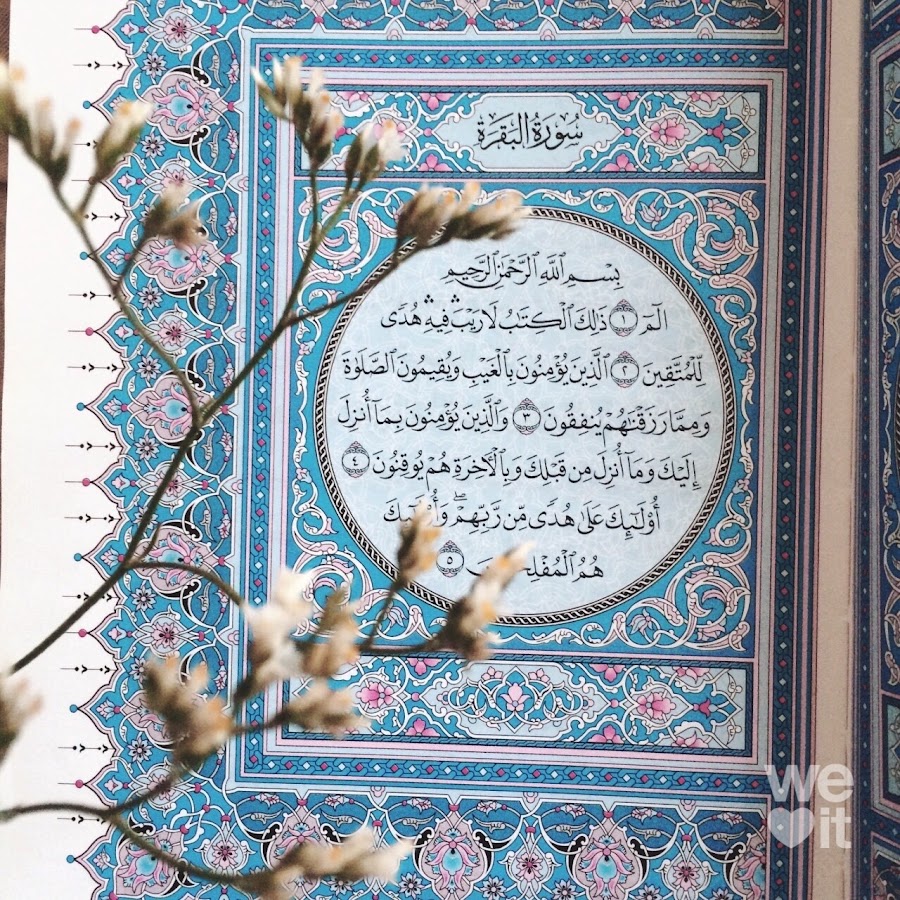 سُورَةُ البَقَرَةِ
بِسْمِ اللَّهِ الرَّحْمَٰنِ الرَّحِيمِ
الٓمٓ ١ ذَٰلِكَ الْكِتَابُ لَا رَيْبَ ۛ فِيهِ ۛ هُدًى
لِّلْمُتَّقِينَ ٢ الَّذِينَ يُؤْمِنُونَ بِالْغَيْبِ وَيُقِيمُونَ الصَّلَوٰةَ
وَمِمَّا رَزَقْنَٰهُمْ يُنفِقُونَ ٣ وَالَّذِينَ يُؤْمِنُونَ بِمَا أُنزِلَ
إِلَيْكَ وَمَا أُنزِلَ مِن قَبْلِكَ وَبِالْأَخِرَةِ هُمْ يُوقِنُونَ ٤
أُوْلَٰٓئِكَ عَلَىٰ هُدًى مِّن رَّبِّهِمْ ۖ
هُمُ ٥
we
it